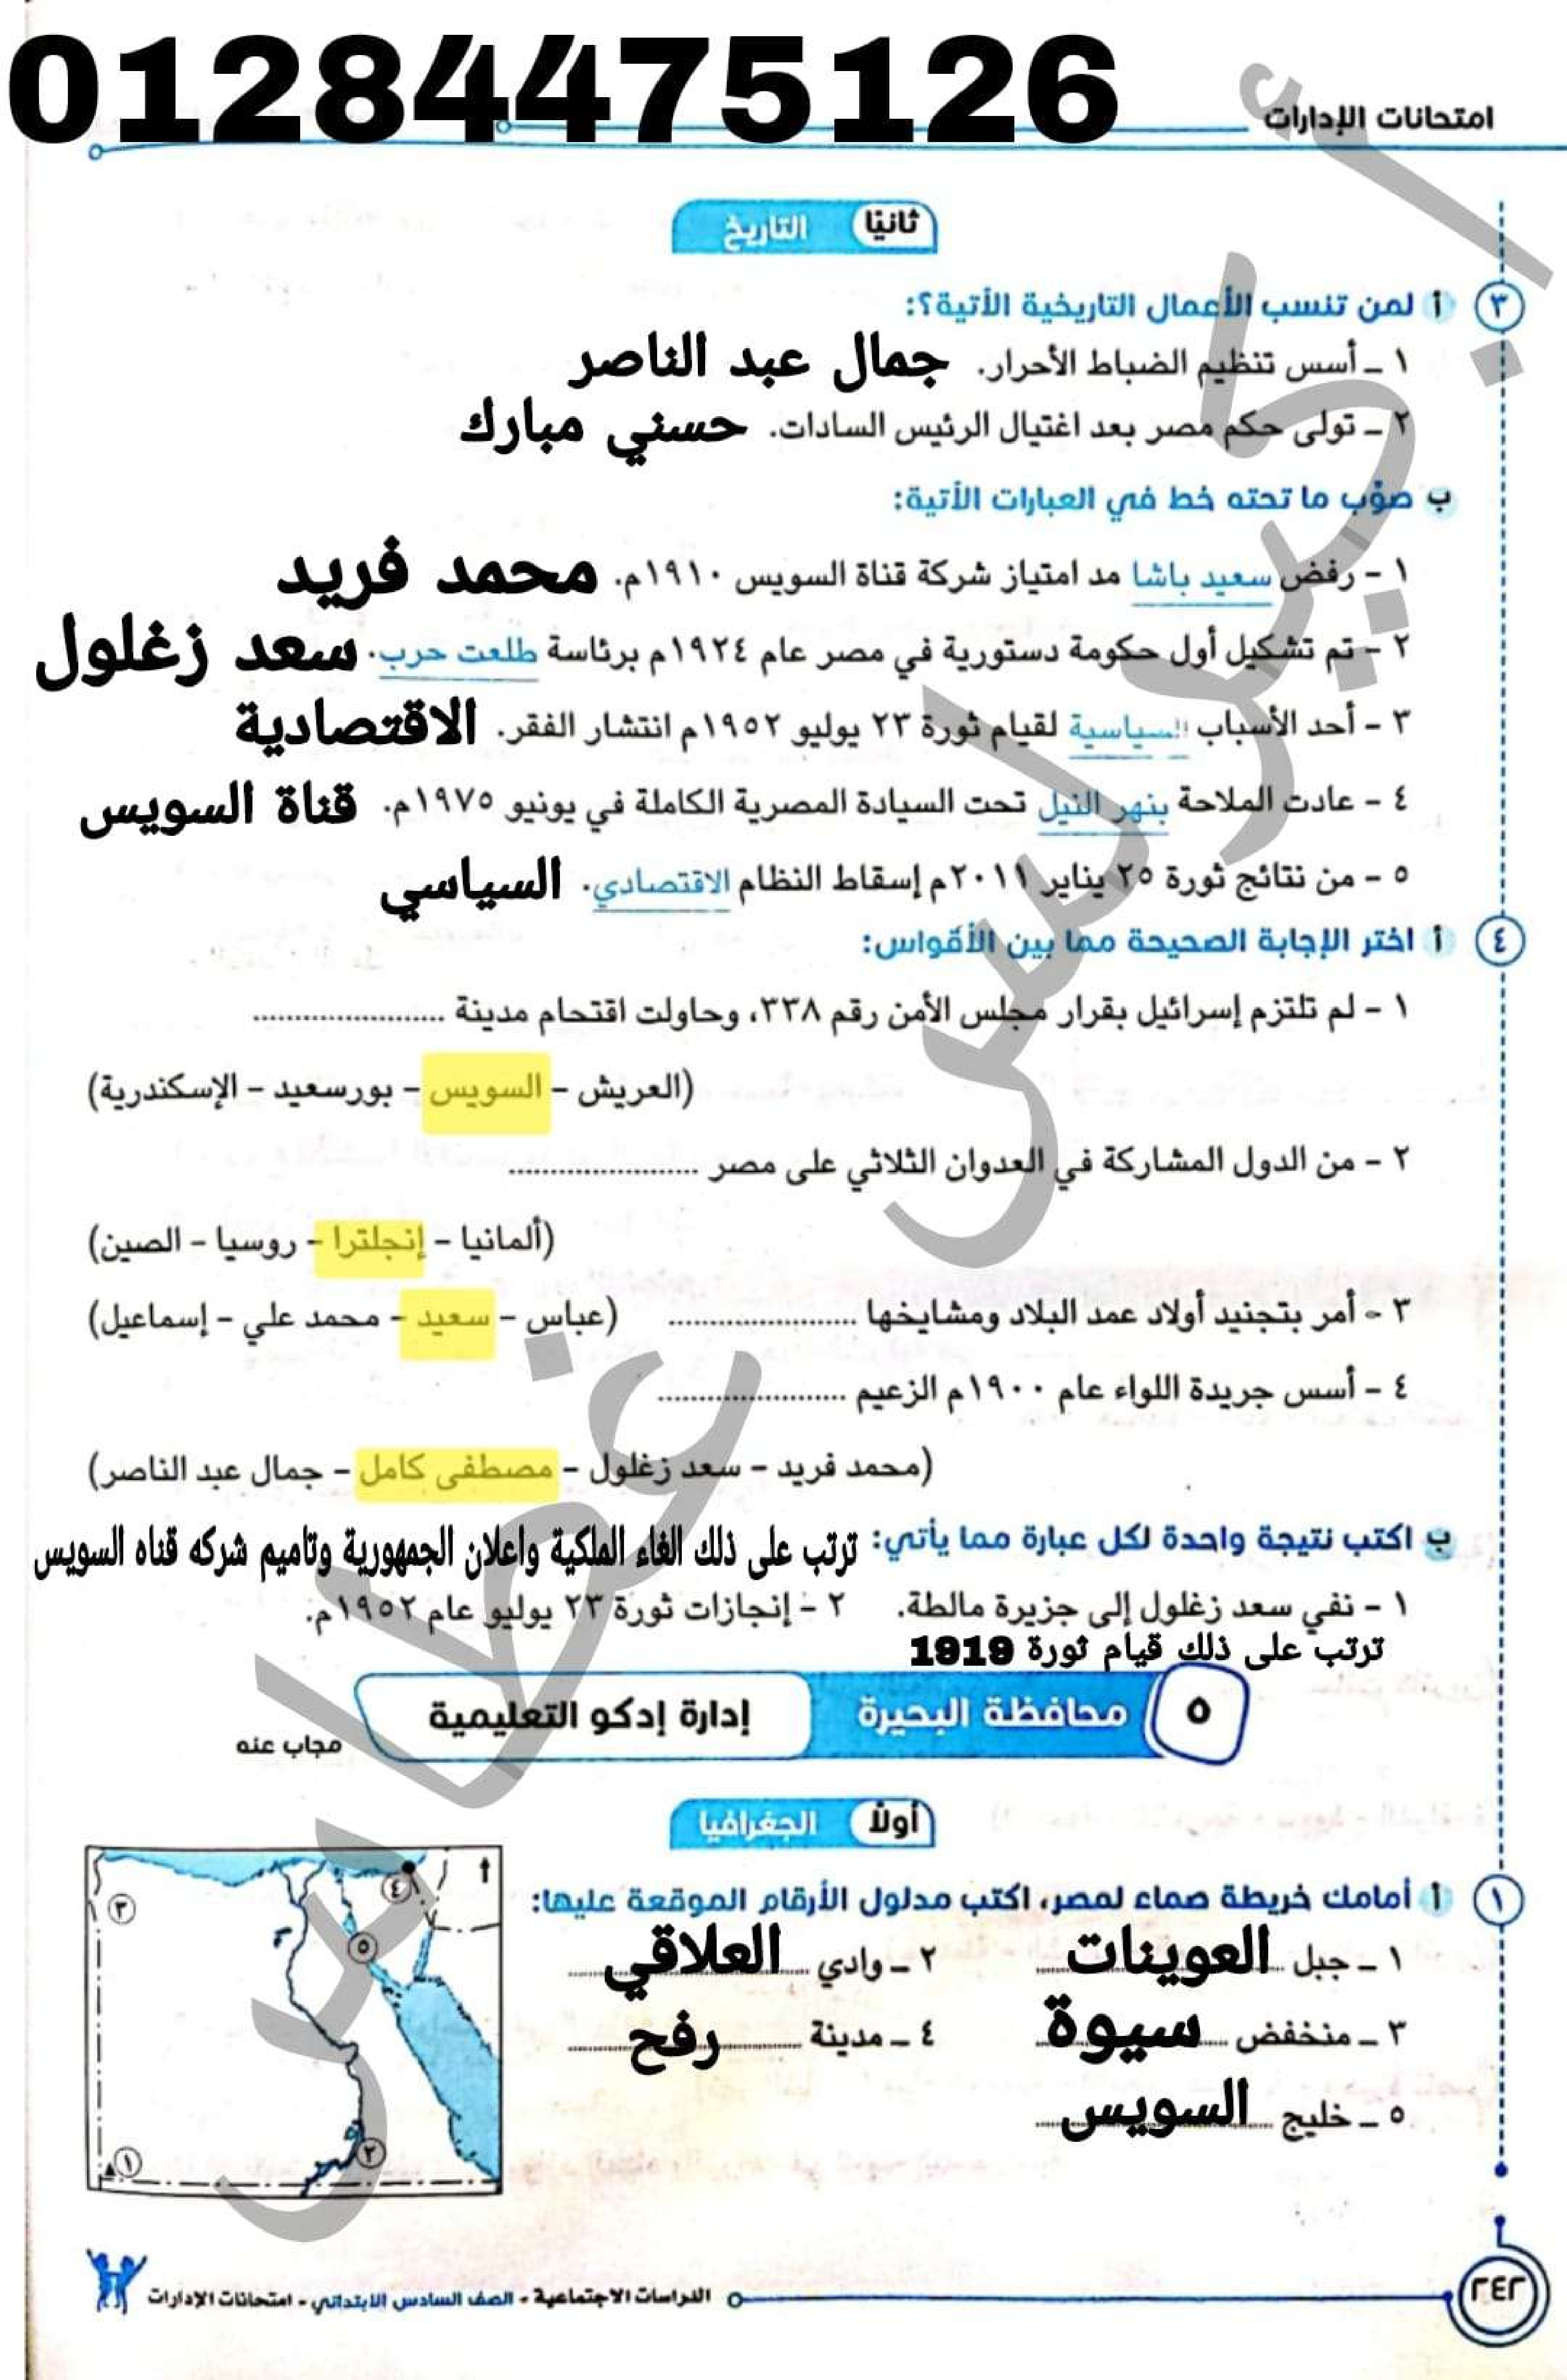 01284475126
امتحانات الإدارات
ثانيًا التاريخ
٣ أ لمن تنسب الأعمال التاريخية الأتية؟:
١ - أسس تنظيم الضباط الأحرار. جمال عبد الناصر
٢ - تولى حكم مصر بعد اغتيال الرئيس السادات. حسني مبارك
ب صوِّب ما تحته خط في العبارات الأتية:
١ - رفض سعيد باشا مد امتياز شركة قناة السويس ١٩١٠م. محمد فريد
٢ - تم تشكيل أول حكومة دستورية في مصر عام ١٩٢٤م برئاسة طلعت حرب. سعد زغلول
٣ - أحد الأسباب السياسية لقيام ثورة ٢٣ يوليو ١٩٥٢م انتشار الفقر. الاقتصادية
٤ - عادت الملاحة بنهر النيل تحت السيادة المصرية الكاملة في يونيو ١٩٧٥م. قناة السويس
٥ - من نتائج ثورة ٢٥ يناير ٢٠١١م إسقاط النظام الاقتصادي. السياسي
٤ أ اختر الإجابة الصحيحة مما بين الأقواس:
١ - لم تلتزم إسرائيل بقرار مجلس الأمن رقم ٣٣٨، وحاولت اقتحام مدينة ......................
(العريش - السويس - بورسعيد - الإسكندرية)
٢ - من الدول المشاركة في العدوان الثلاثي على مصر ......................
(ألمانيا - إنجلترا - روسيا - الصين)
٣ - أمر بتجنيد أولاد عمد البلاد ومشايخها ...................... (عباس - سعيد - محمد علي - إسماعيل)
٤ - أسس جريدة اللواء عام ١٩٠٠م الزعيم ......................
(محمد فريد - سعد زغلول - مصطفى كامل - جمال عبد الناصر)
ب اكتب نتيجة واحدة لكل عبارة مما يأتي: ترتب على ذلك الغاء الملكية واعلان الجمهورية وتاميم شركه قناه السويس
١ - نفي سعد زغلول إلى جزيرة مالطة. ٢ - إنجازات ثورة ٢٣ يوليو عام ١٩٥٢م.
ترتب على ذلك قيام ثورة 1919
٥ محافظة البحيرة إدارة إدكو التعليمية مجاب عنه
أولًا الجغرافيا
١ أ أمامك خريطة صماء لمصر، اكتب مدلول الأرقام الموقعة عليها:
١ - جبل العوينات ٢ - وادي العلاقي
٣ - منخفض سيوة ٤ - مدينة رفح
٥ - خليج السويس
٣ ٤
٥
١ ٢
أ. كيرلس غطاس
الدراسات الاجتماعية - الصف السادس الابتدائي - امتحانات الإدارات
٢٤٢